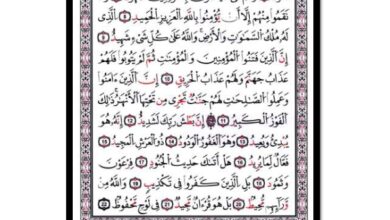 نَقَمُوا۟ مِنْهُمْ إِلَّآ أَن يُؤْمِنُوا۟ بِٱللَّهِ ٱلْعَزِيزِ ٱلْحَمِيدِ ٨ ٱلَّذِى
لَهُۥ مُلْكُ ٱلسَّمَـٰوَٰتِ وَٱلْأَرْضِ وَٱللَّهُ عَلَىٰ كُلِّ شَىْءٍ شَهِيدٌ ٩
إِنَّ ٱلَّذِينَ فَتَنُوا۟ ٱلْمُؤْمِنِينَ وَٱلْمُؤْمِنَـٰتِ ثُمَّ لَمْ يَتُوبُوا۟ فَلَهُمْ
عَذَابُ جَهَنَّمَ وَلَهُمْ عَذَابُ ٱلْحَرِيقِ ١٠ إِنَّ ٱلَّذِينَ ءَامَنُوا۟
وَعَمِلُوا۟ ٱلصَّـٰلِحَـٰتِ لَهُمْ جَنَّـٰتٌ تَجْرِى مِن تَحْتِهَا ٱلْأَنْهَـٰرُ ذَٰلِكَ
ٱلْفَوْزُ ٱلْكَبِيرُ ١١ إِنَّ بَطْشَ رَبِّكَ لَشَدِيدٌ ١٢ إِنَّهُۥ هُوَ
يُبْدِئُ وَيُعِيدُ ١٣ وَهُوَ ٱلْغَفُورُ ٱلْوَدُودُ ١٤ ذُو ٱلْعَرْشِ ٱلْمَجِيدُ ١٥
فَعَّالٌ لِّمَا يُرِيدُ ١٦ هَلْ أَتَىٰكَ حَدِيثُ ٱلْجُنُودِ ١٧ فِرْعَوْنَ
وَثَمُودَ ١٨ بَلِ ٱلَّذِينَ كَفَرُوا۟ فِى تَكْذِيبٍ ١٩ وَٱللَّهُ مِن
وَرَآئِهِم مُّحِيطٌۢ ٢٠ بَلْ هُوَ قُرْءَانٌ مَّجِيدٌ ٢١ فِى لَوْحٍ مَّحْفُوظٍۭ ٢٢